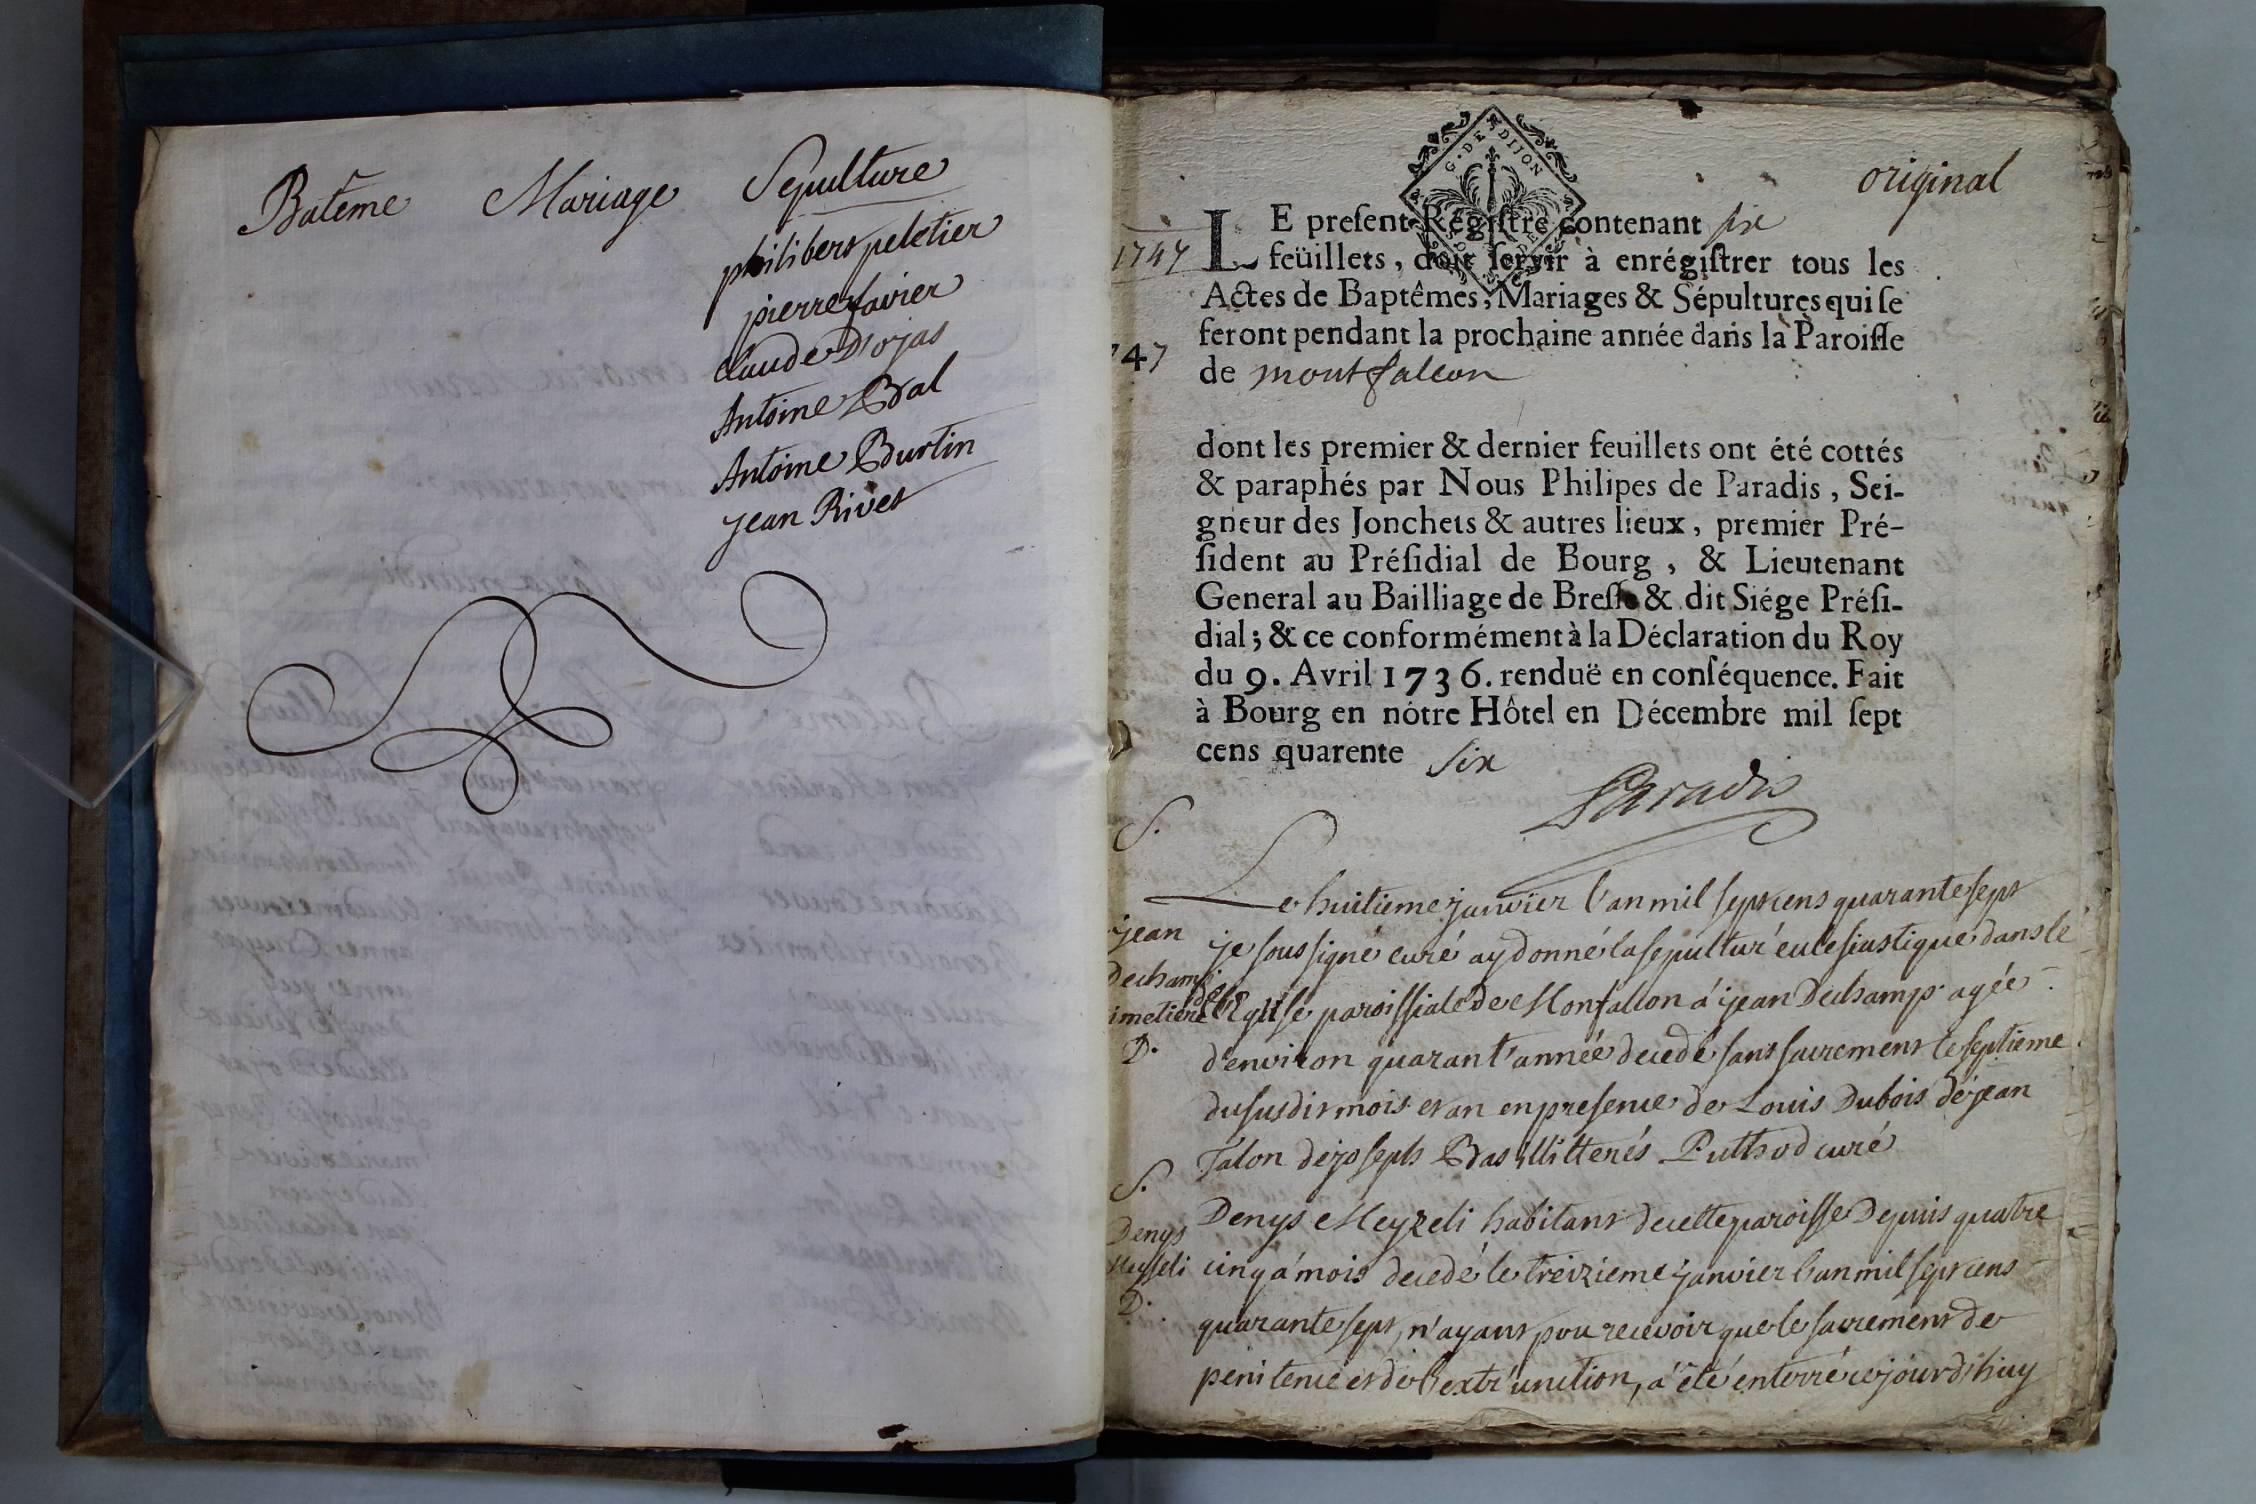 Batême Mariage Sepulture
philibert peletier
pierre favier
Claude Dojas
Antoine Bal
Antoine Burtin
jean Rivet
G. DE DIJON
original
1747
747
LE preſent Régiſtre contenant six
feüillets, doit ſervir à enrégiſtrer tous les
Actes de Baptêmes, Mariages & Sépultures qui ſe
feront pendant la prochaine année dans la Paroiſſe
de montfalcon
dont les premier & dernier feuillets ont été cottés
& paraphés par Nous Philipes de Paradis, Sei-
gneur des Jonchets & autres lieux, premier Pré-
ſident au Préſidial de Bourg, & Lieutenant
General au Bailliage de Breſſe & dit Siége Préſi-
dial; & ce conformément à la Déclaration du Roy
du 9. Avril 1736. renduë en conſéquence. Fait
à Bourg en nôtre Hôtel en Décembre mil ſept
cens quarente six
Paradis
S.
jean
Dechamp
imetiere
D.
Le huitieme janvier l'an mil sept cens quarante sept
je sous signé curé ay donné la sepultur' eclesiastique dans le
de l'Eglise paroissiale de Monfalcon á jean Dechamps agée
d'environ quarant' année decedé sans sacrement le septieme
du susdit mois et an en presence de Louis Dubois de jean
Talon de joseph Bas illitterés Puthod curé
S.
Denys
Meyseli
D.
Denys Meyzeli habitant de cette paroisse Depuis quatre
cinq á mois decedé le treizieme janvier l'an mil sept cens
quarante sept, n'ayant pou recevoir que le sacrement de
penitence et de l'extr' unction, a été enterré cejourd'huy